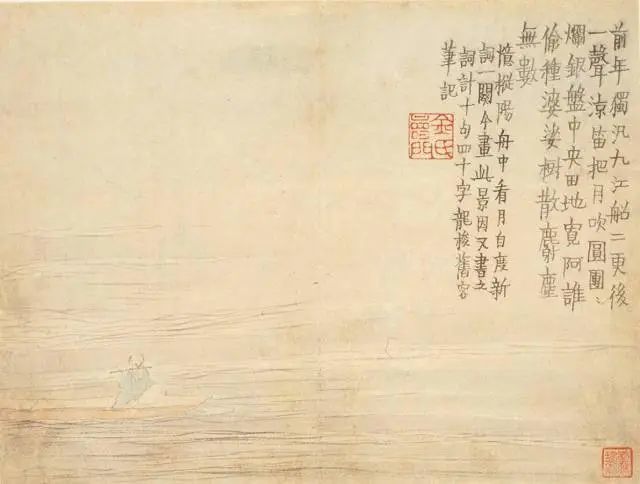 前年獨汎九江船二更後
一聲涼笛把月吹圓團〻
爛銀盤中央田地寬阿誰
偷種婆娑樹散麝塵
無數
憶樅陽舟中看月自度新
詞一闋今畫此景因又書之
詞計十句四十字龍梭舊客
筆記
金氏壽門